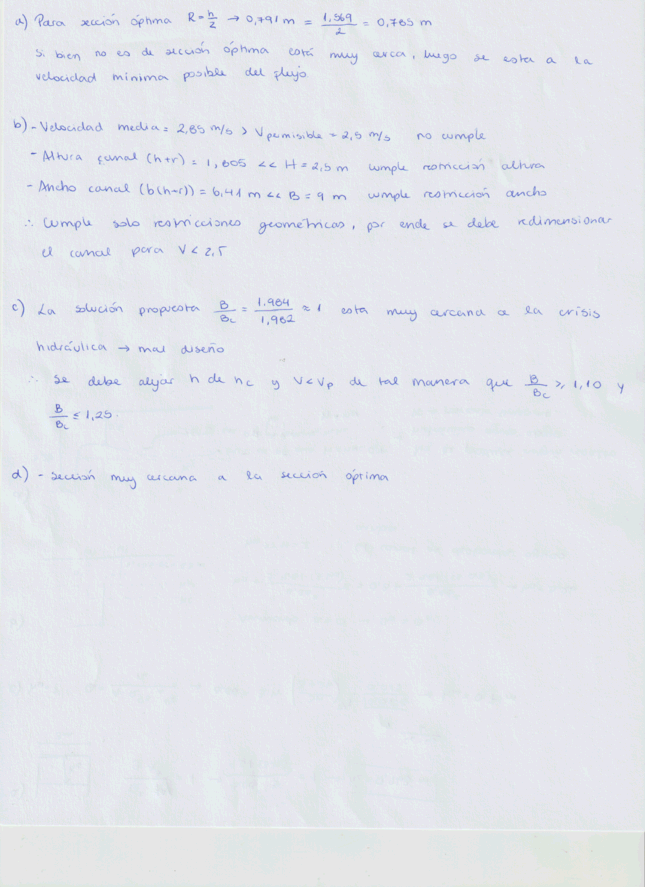 a) Para sección óptima R = h/2 → 0,791 m = 1,569/2 = 0,785 m
Si bien no es de sección óptima está muy cerca, luego se esta a la
velocidad mínima posible del flujo.
b) - Velocidad media = 2,85 m/s > Vpermisible = 2,5 m/s no cumple
- Altura canal (h+r) = 1,805 << H = 2,5 m cumple restricción altura
- Ancho canal (b(h+r)) = 6,41 m << B = 9 m cumple restricción ancho
∴ Cumple solo restricciones geométricas, por ende se debe redimensionar
el canal para V < 2,5
c) La solución propuesta B/Bc = 1.984/1,982 ≈ 1 esta muy cercana a la crisis
hidráulica → mal diseño
∴ Se debe alejar h de hc y V<Vp de tal manera que B/Bc ≥ 1,10 y
B/Bc ≤ 1,25.
d) - sección muy cercana a la sección óptima